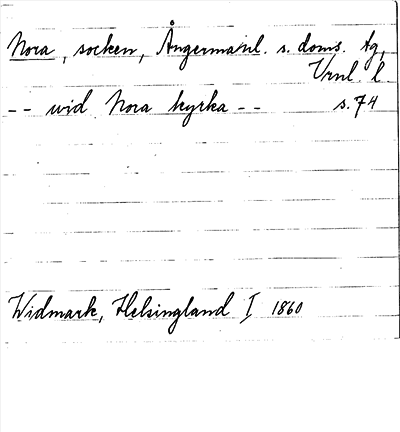 Nora, socken, Ångermanl. s. doms. tg,
Vrnl. l
-- wid Nora kyrka -- s. 74
Widmark, Helsingland I 1860